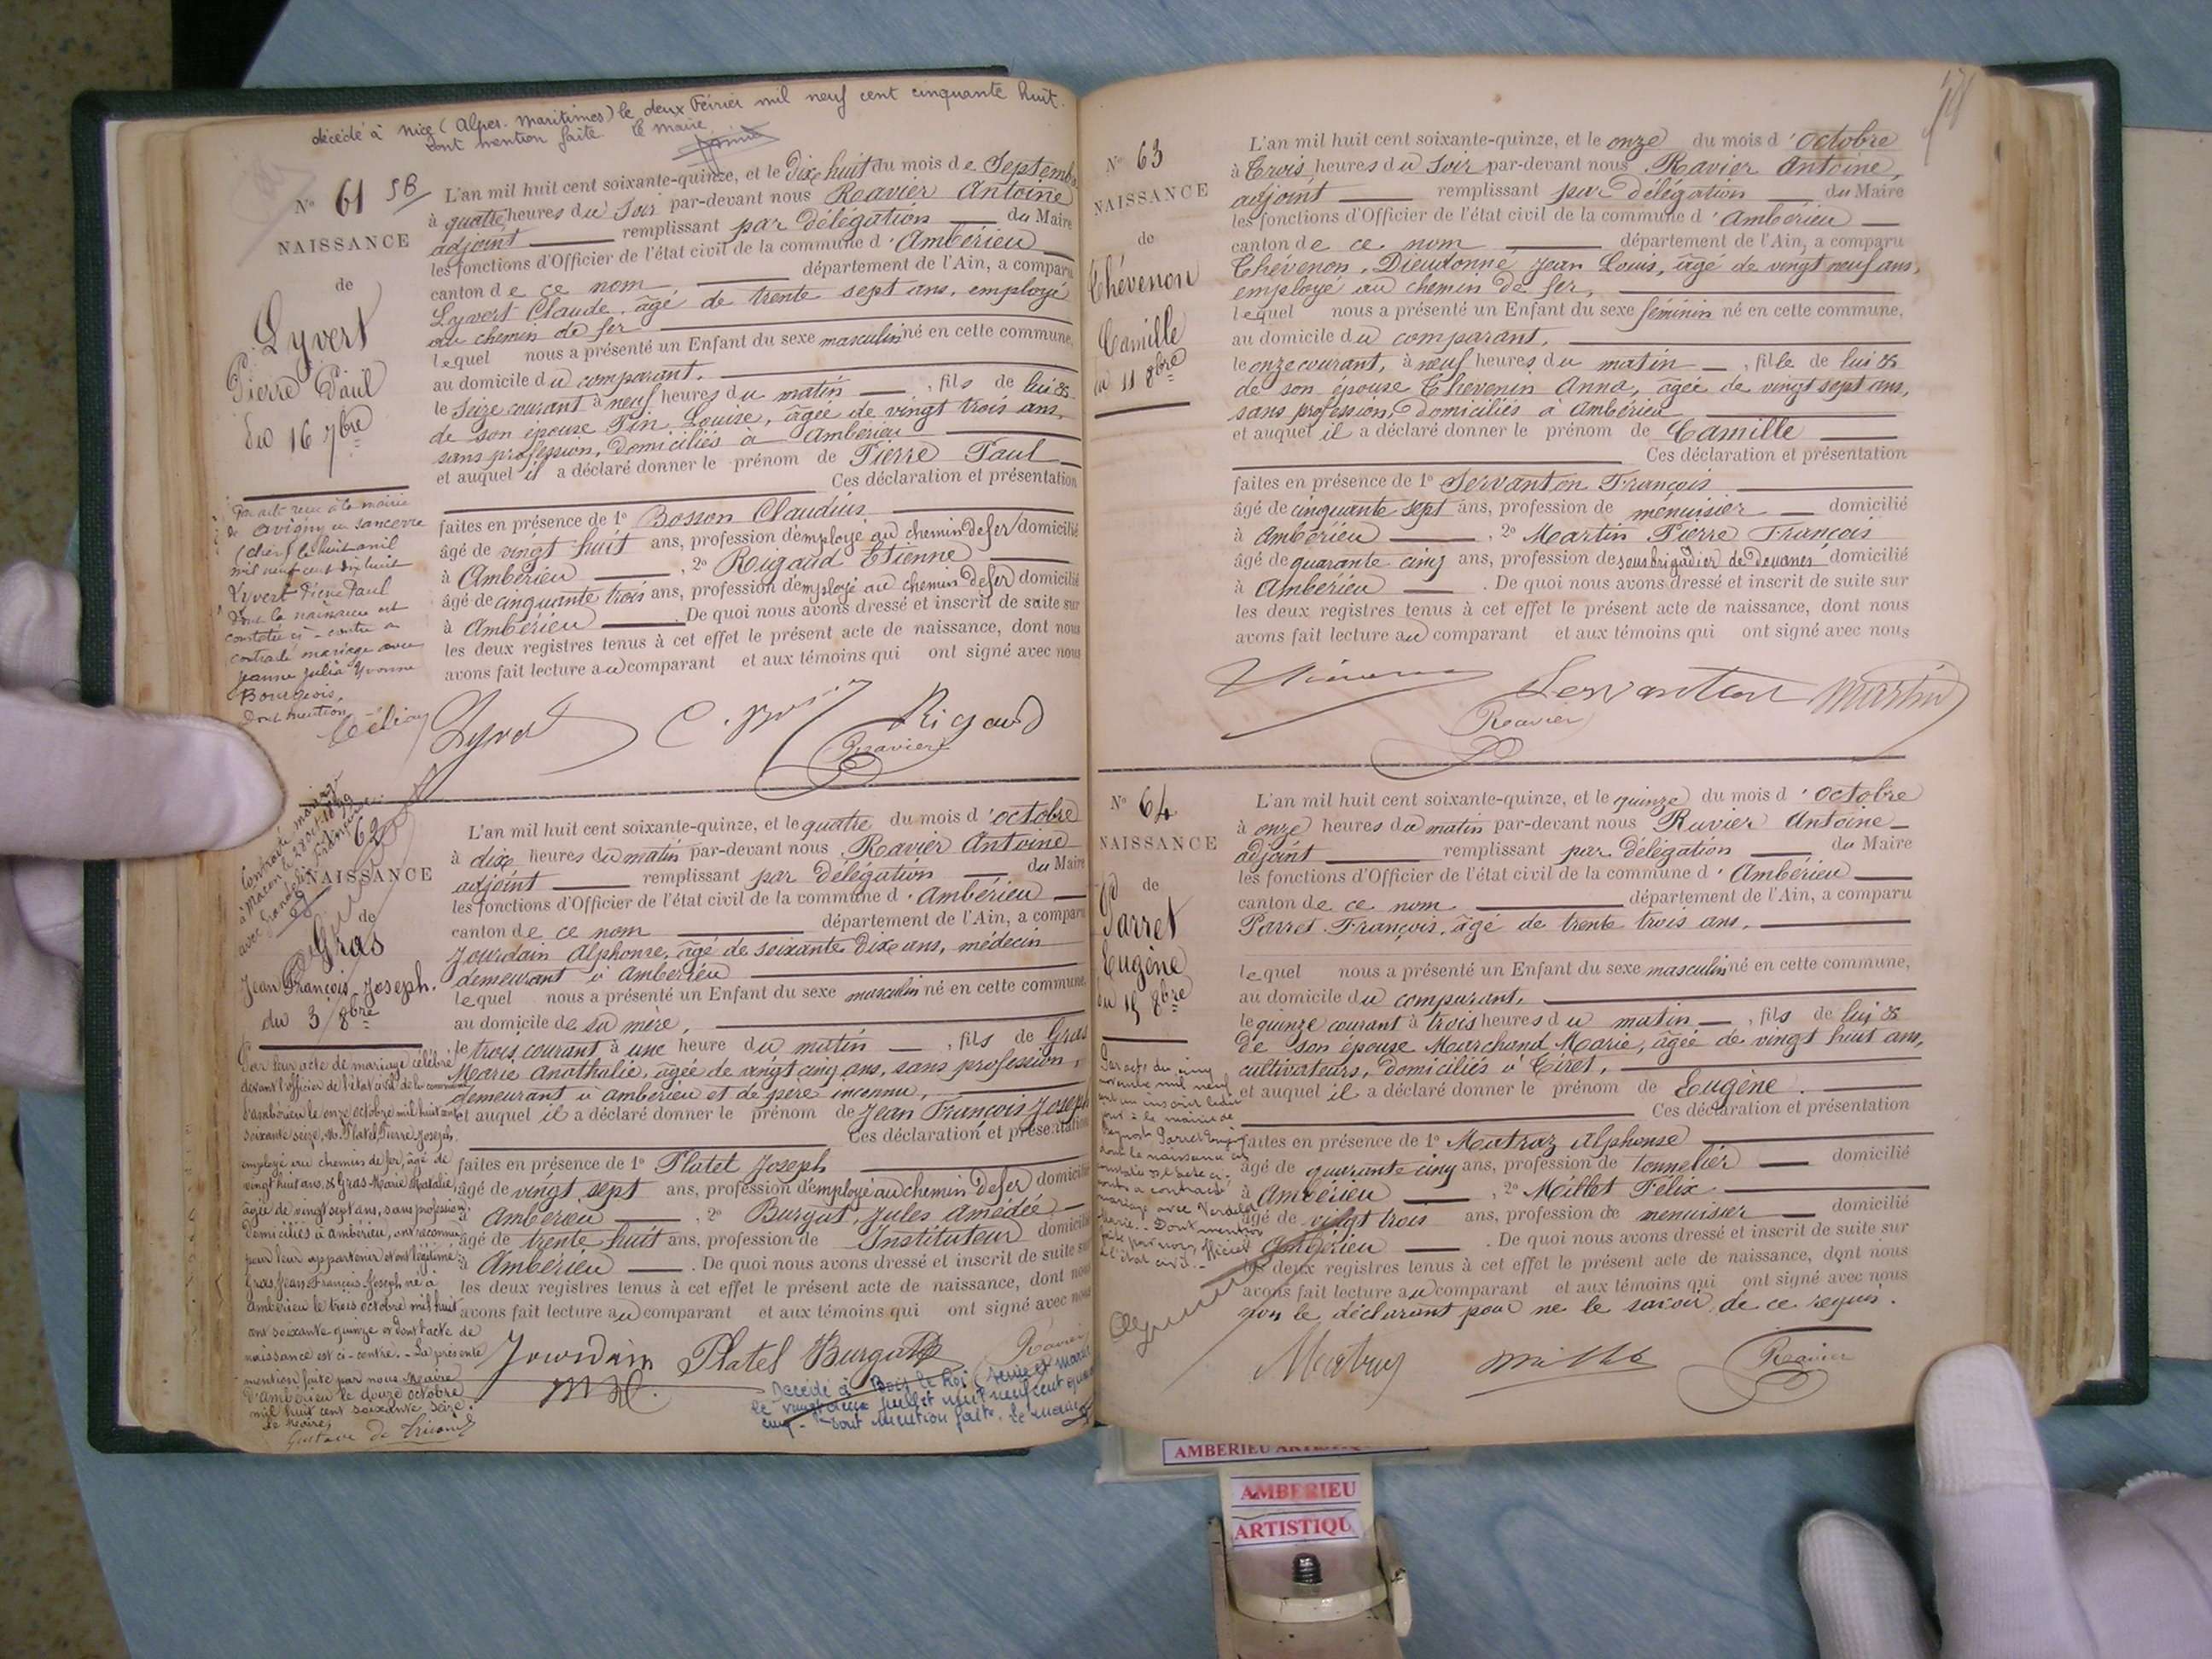 décédé à Nice (Alpes-Maritimes) le deux Février mil neuf cent cinquante huit.
dont mention faite. Le Maire
N° 61 SB
NAISSANCE
de
Lyvert
Pierre Paul
du 16 7bre
L'an mil huit cent soixante-quinze, et le dix huit du mois de Septembre
à quatre heures du Soir par-devant nous Ravier Antoine
adjoint remplissant par délégation du Maire
les fonctions d'Officier de l'état civil de la commune d'Ambérieu
canton de ce nom département de l'Ain, a comparu
Lyvert Claude, âgé de trente sept ans, employé
au chemin de fer
lequel nous a présenté un Enfant du sexe masculin né en cette commune,
au domicile du comparant.
le Seize courant à neuf heures du matin, fils de lui &
de son épouse Pin Louise, âgée de vingt trois ans,
sans profession, domiciliés à Ambérieu
et auquel il a déclaré donner le prénom de Pierre Paul
Ces déclaration et présentation
faites en présence de 1° Bosson Claudius
âgé de vingt huit ans, profession d'employé au chemin de fer domicilié
à Ambérieu, 2° Rigaud Etienne
âgé de cinquante trois ans, profession d'employé au chemin de fer domicilié
à Ambérieu. De quoi nous avons dressé et inscrit de suite sur
les deux registres tenus à cet effet le présent acte de naissance, dont nous
avons fait lecture au comparant et aux témoins qui ont signé avec nous
Par acte reçu à la mairie
de
(Cher) le huit avril
mil neuf cent dix huit
Lyvert Pierre Paul
dont la naissance est
constatée ci-contre a
contracté mariage avec
Jeanne Julia Yvonne
Bourgeois.
Dont mention
Lyvert Rigaud
Ravier
Contracté mariage
à Macon le 28
avec
62
NAISSANCE
de
Gras
Jean François Joseph.
du 3 8bre
L'an mil huit cent soixante-quinze, et le quatre du mois d'octobre
à dix heures du matin par-devant nous Ravier Antoine
adjoint remplissant par délégation du Maire
les fonctions d'Officier de l'état civil de la commune d'Ambérieu
canton de ce nom département de l'Ain, a comparu
Jourdain Alphonse, âgé de soixante dix ans, médecin
demeurant à Ambérieu
lequel nous a présenté un Enfant du sexe masculin né en cette commune
au domicile de sa mère,
le trois courant à une heure du matin, fils de Gras
Marie Anathalie, âgée de vingt cinq ans, sans profession,
demeurant à Ambérieu et de père inconnu,
et auquel il a déclaré donner le prénom de Jean François Joseph
Ces déclaration et présentation
faites en présence de 1° Platet Joseph
âgé de vingt sept ans, profession d'employé au chemin de fer domicilié
à Ambérieu, 2° Burgat, Jules Amédée
âgé de trente huit ans, profession de Instituteur domicilié
à Ambérieu. De quoi nous avons dressé et inscrit de suite sur
les deux registres tenus à cet effet le présent acte de naissance, dont nous
avons fait lecture au comparant et aux témoins qui ont signé avec nous
Par leur acte de mariage célébré
devant l'officier de l'état civil de la commune
d'Ambérieu le onze octobre mil huit cent
soixante seize, M. Platet Pierre Joseph,
employé au chemin de fer, âgé de
vingt huit ans, & Gras Marie Natalie,
âgée de vingt sept ans, sans profession,
domiciliés à Ambérieu, ont reconnu
pour leur appartenir et ont légitimé
Gras, Jean François Joseph né à
Ambérieu le trois octobre mil huit
cent soixante quinze et dont l'acte de
naissance est ci-contre. - La présente
mention faite par nous Maire
d'Ambérieu le douze octobre
mil huit cent soixante seize.
Le Maire,
Jourdain Platet Burgat Ravier
Décédé à Bois le Roi (Seine et Marne)
le vingt deux juillet mil neuf cent quarante
cinq - Dont mention faite. Le Maire
N° 63
NAISSANCE
de
Chévenon
Camille
du 11 8bre
L'an mil huit cent soixante-quinze, et le onze du mois d'octobre
à trois heures du Soir par-devant nous Ravier Antoine,
adjoint remplissant par délégation du Maire
les fonctions d'Officier de l'état civil de la commune d'Ambérieu
canton de ce nom département de l'Ain, a comparu
Chévenon, Dieudonné Jean Louis, âgé de vingt neuf ans,
employé au chemin de fer,
lequel nous a présenté un Enfant du sexe féminin né en cette commune,
au domicile du comparant,
le onze courant, à neuf heures du matin, fille de lui &
de son épouse Chevenin Anna, âgée de vingt sept ans,
sans profession, domiciliés à Ambérieu
et auquel il a déclaré donner le prénom de Camille
Ces déclaration et présentation
faites en présence de 1° Servanton François
âgé de cinquante sept ans, profession de menuisier domicilié
à Ambérieu, 2° Martin Pierre François
âgé de quarante cinq ans, profession de sous brigadier de Douanes domicilié
à Ambérieu. De quoi nous avons dressé et inscrit de suite sur
les deux registres tenus à cet effet le présent acte de naissance, dont nous
avons fait lecture au comparant et aux témoins qui ont signé avec nous
Servanton Martin
Ravier
N° 64
NAISSANCE
de
Parret
Eugène
du 15 8bre
L'an mil huit cent soixante-quinze, et le quinze du mois d'octobre
à onze heures du matin par-devant nous Ravier Antoine
adjoint remplissant par délégation du Maire
les fonctions d'Officier de l'état civil de la commune d'Ambérieu
canton de ce nom département de l'Ain, a comparu
Parret François, âgé de trente trois ans,
lequel nous a présenté un Enfant du sexe masculin né en cette commune,
au domicile du comparant,
le quinze courant à trois heures du matin, fils de lui &
de son épouse Marchand Marie, âgée de vingt huit ans,
cultivateurs, domiciliés à Tiret,
et auquel il a déclaré donner le prénom de Eugène.
Ces déclaration et présentation
faites en présence de 1° Matraz Alphonse
âgé de quarante cinq ans, profession de tonnelier domicilié
à Ambérieu, 2° Millet Félix
âgé de vingt trois ans, profession de menuisier domicilié
à Ambérieu. De quoi nous avons dressé et inscrit de suite sur
les deux registres tenus à cet effet le présent acte de naissance, dont nous
avons fait lecture au comparant et aux témoins qui ont signé avec nous
non le déclarant pour ne le savoir de ce requis.
Par acte du cinq
novembre mil neuf
cent un inscrit
à la mairie de
Parret Eugène
dont la naissance est
constatée
contre a contracté
mariage avec
Marie. - Dont mention
faite par nous, officier
de l'état civil. -
Matraz Millet Ravier
AMBERIEU ARTISTIQU
AMBERIEU
ARTISTIQU